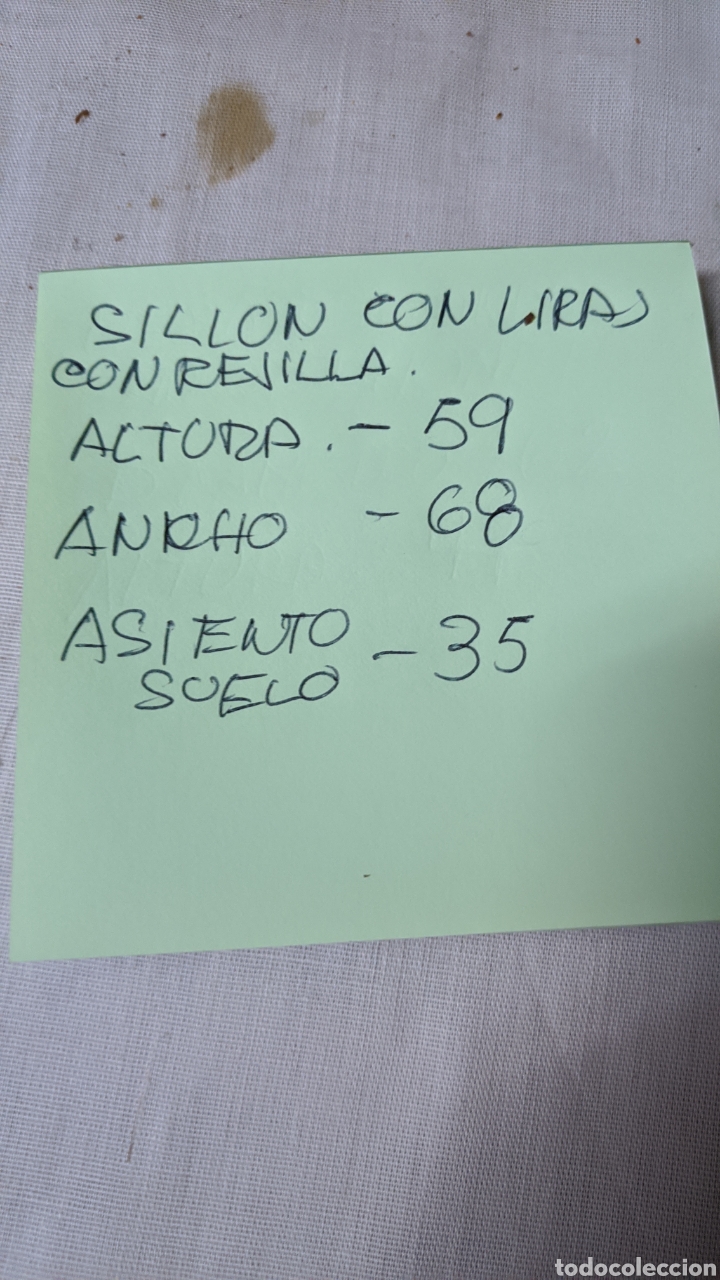 SILLON CON LIRAS
CON REJILLA.
ALTURA. - 59
ANCHO - 68
ASIENTO - 35
SUELO
todocoleccion